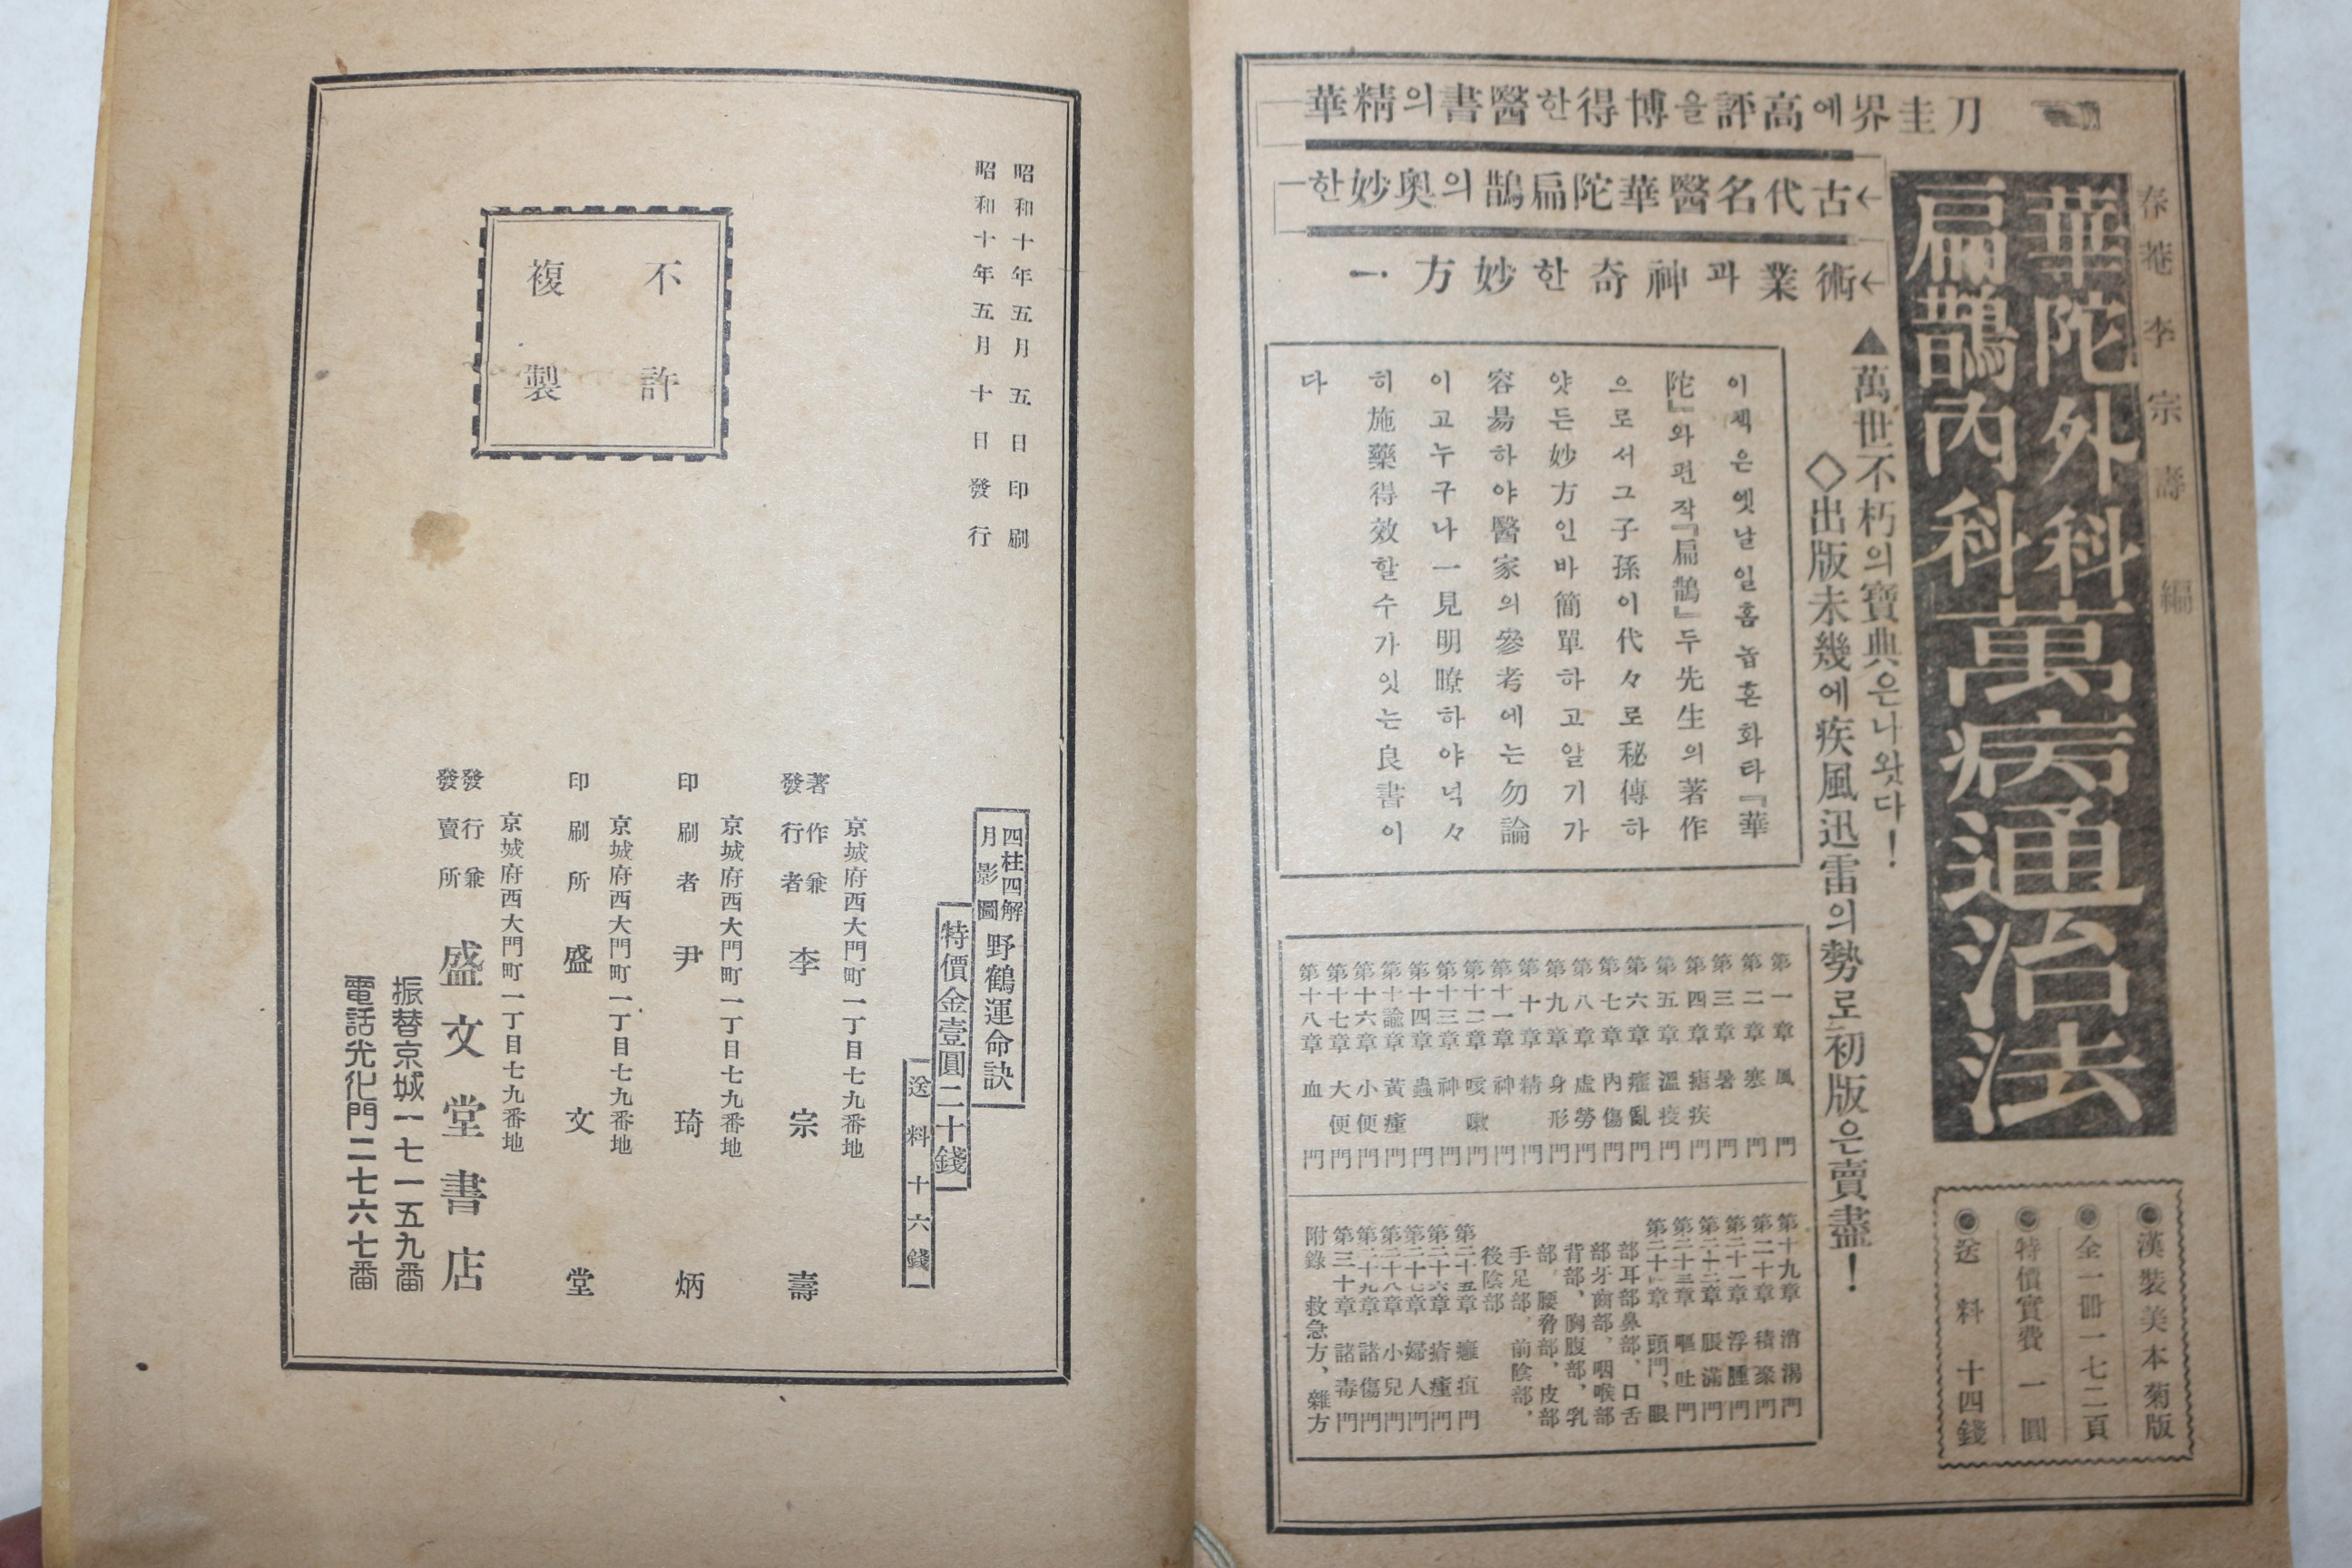 刀圭界에高評을博得한醫書의精華
←古代名醫華陀扁鵲의奧妙한
←術業과神奇한妙方
春菴 李宗壽 編
華陀外科
扁鵲內科
萬病通治法
▲萬世不朽의寶典은나왓다!
◇出版未幾에疾風迅雷의勢로初版은賣盡!
이책은옛날일홈놉흔화타『華
陀』와편작『扁鵲』두先生의著作
으로서그子孫이代々로秘傳하
얏든妙方인바簡單하고알기가
容易하야醫家의參考에는勿論
이고누구나一見明瞭하야넉々
히施藥得效할수가잇는良書이
다
第一章 風門
第二章 寒門
第三章 暑門
第四章 瘧疾門
第五章 溫疫門
第六章 癨亂門
第七章 內傷門
第八章 虛勞門
第九章 身形門
第十章 精門
第十一章 神門
第十二章 咳嗽門
第十三章 神門
第十四章 蟲門
第十論章 黃疸門
第十六章 小便門
第十七章 大便門
第十八章 血門
第十九章 消渴門
第二十章 積聚門
第二十一章 浮腫門
第二十二章 脹滿門
第二十三章 嘔吐門
第二十四章 頭門、眼
部耳部鼻部、口舌
部牙齒部、咽喉部
背部、胸腹部、乳
部、腰脅部、皮部
手足部、前陰部、
後陰部
第二十五章 癰疽門
第二十六章 瘡癦門
第二十七章 婦人門
第二十八章 小兒門
第二十九章 諸傷門
第三十章 諸毒門
附錄 救急方、雜方
◉漢裝美本菊版
◉全一冊一七二頁
◉特價實費一圓
◉送料十四錢
昭和十年五月五日印刷
昭和十年五月十日發行
不許
複製
四柱四解
月影圖
野鶴運命訣
特價金壹圓二十錢
送料十六錢
京城府西大門町一丁目七九番地
著作兼
發行者 李宗壽
京城府西大門町一丁目七九番地
印刷者 尹琦炳
京城府西大門町一丁目七九番地
印刷所 盛文堂
京城府西大門町一丁目七九番地
發行兼
發賣所 盛文堂書店
振替京城一七一五九番
電話光化門二七六七番